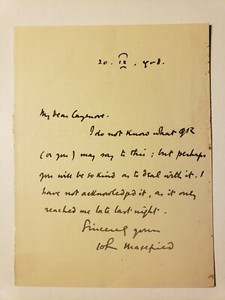 20. IX. 908.
My dear Cazenove.
I do not know what
(or you) may say to this; but perhaps
you will be so kind as to deal with it. I
have not acknowledged it, as it only
reached me late last night.
Sincerely yours
John Masefield